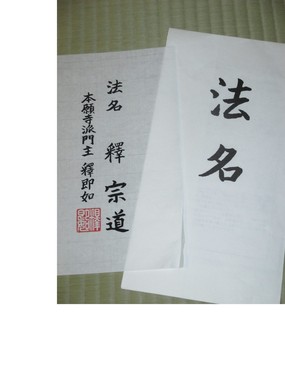 法名
法名 釋 宗道
本願寺派門主 釋即如